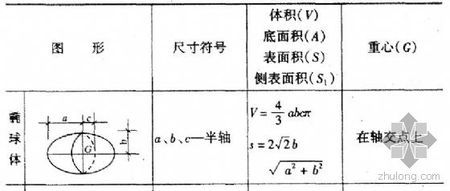 图 形
尺寸符号
体积(V)
底面积(A)
表面积(S)
侧表面积(S₁)
重心(G)
椭球体
a
c
b
G
a、b、c—半轴
V = 4/3 abcπ
s = 2√2 b
√a² + b²
在轴交点上
zhulong.com